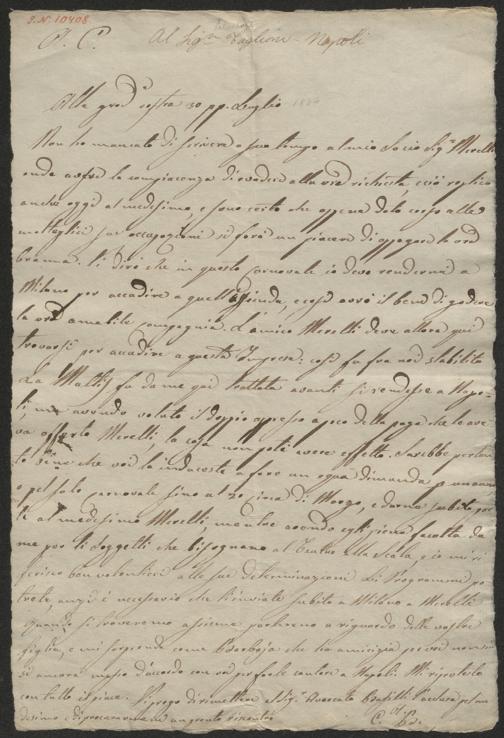 I.N. 10408
A. C. Al Sigr Taglioni - Napoli
Alla grada vostra 30 pp. Luglio
Non ho mancato di scrivere a suo tempo al mio Socio Sigr Merelli
onde avesse la compiacenza di evadere alla vra richiesta, e ciò replico
anche oggi al medesimo, e sono certo che appena dato corso alle
molteplici sue occupazioni si farà un piacere di appagare le vre
brame. Vi dirò che in questo Carnovale io devo rendermi a
Milano per accudire a quell'azienda, e così avrò il bene di godere
la vra amabile compagnia. L'amico Merelli deve allora qui
trovarsi per accudire a questa Impresa: così fu fra noi stabilito
La Mattis fu da me qui trattata avanti si rendesse a Napo-
li, ma avendo voluto il doppio appresso a poco della paga che le ave-
va offerto Merelli, la cosa non potè avere effetto. Sarebbe pertan-
to bene che voi la induceste a fare un equa dimanda per un anno
o pel solo Carnovale fino al 20 circa di Marzo, e darne subito par-
te al medesimo Merelli, mentre avendo egli piena facoltà da
me per li soggetti che bisognano al Teatro alla Scala, io mi ri-
ferisco ben volentieri alle sue determinazioni. Li Programmi po-
trete, anzi è necessario che l'inviate subito a Milano a Merelli
Quando si troveremo assieme parleremo a riguardo delle vostre
figlia, e mi sorprende come Barbaja che ha amicizia per voi non
si ancora messo d'accordo con voi per farle cantare a Napoli. Mi riporterò
con tutto il piacere. Vi prego di rimettere al Sigr Avvocato l'acclusa pel me-
desimo e di procurarmene un pronto riscontro